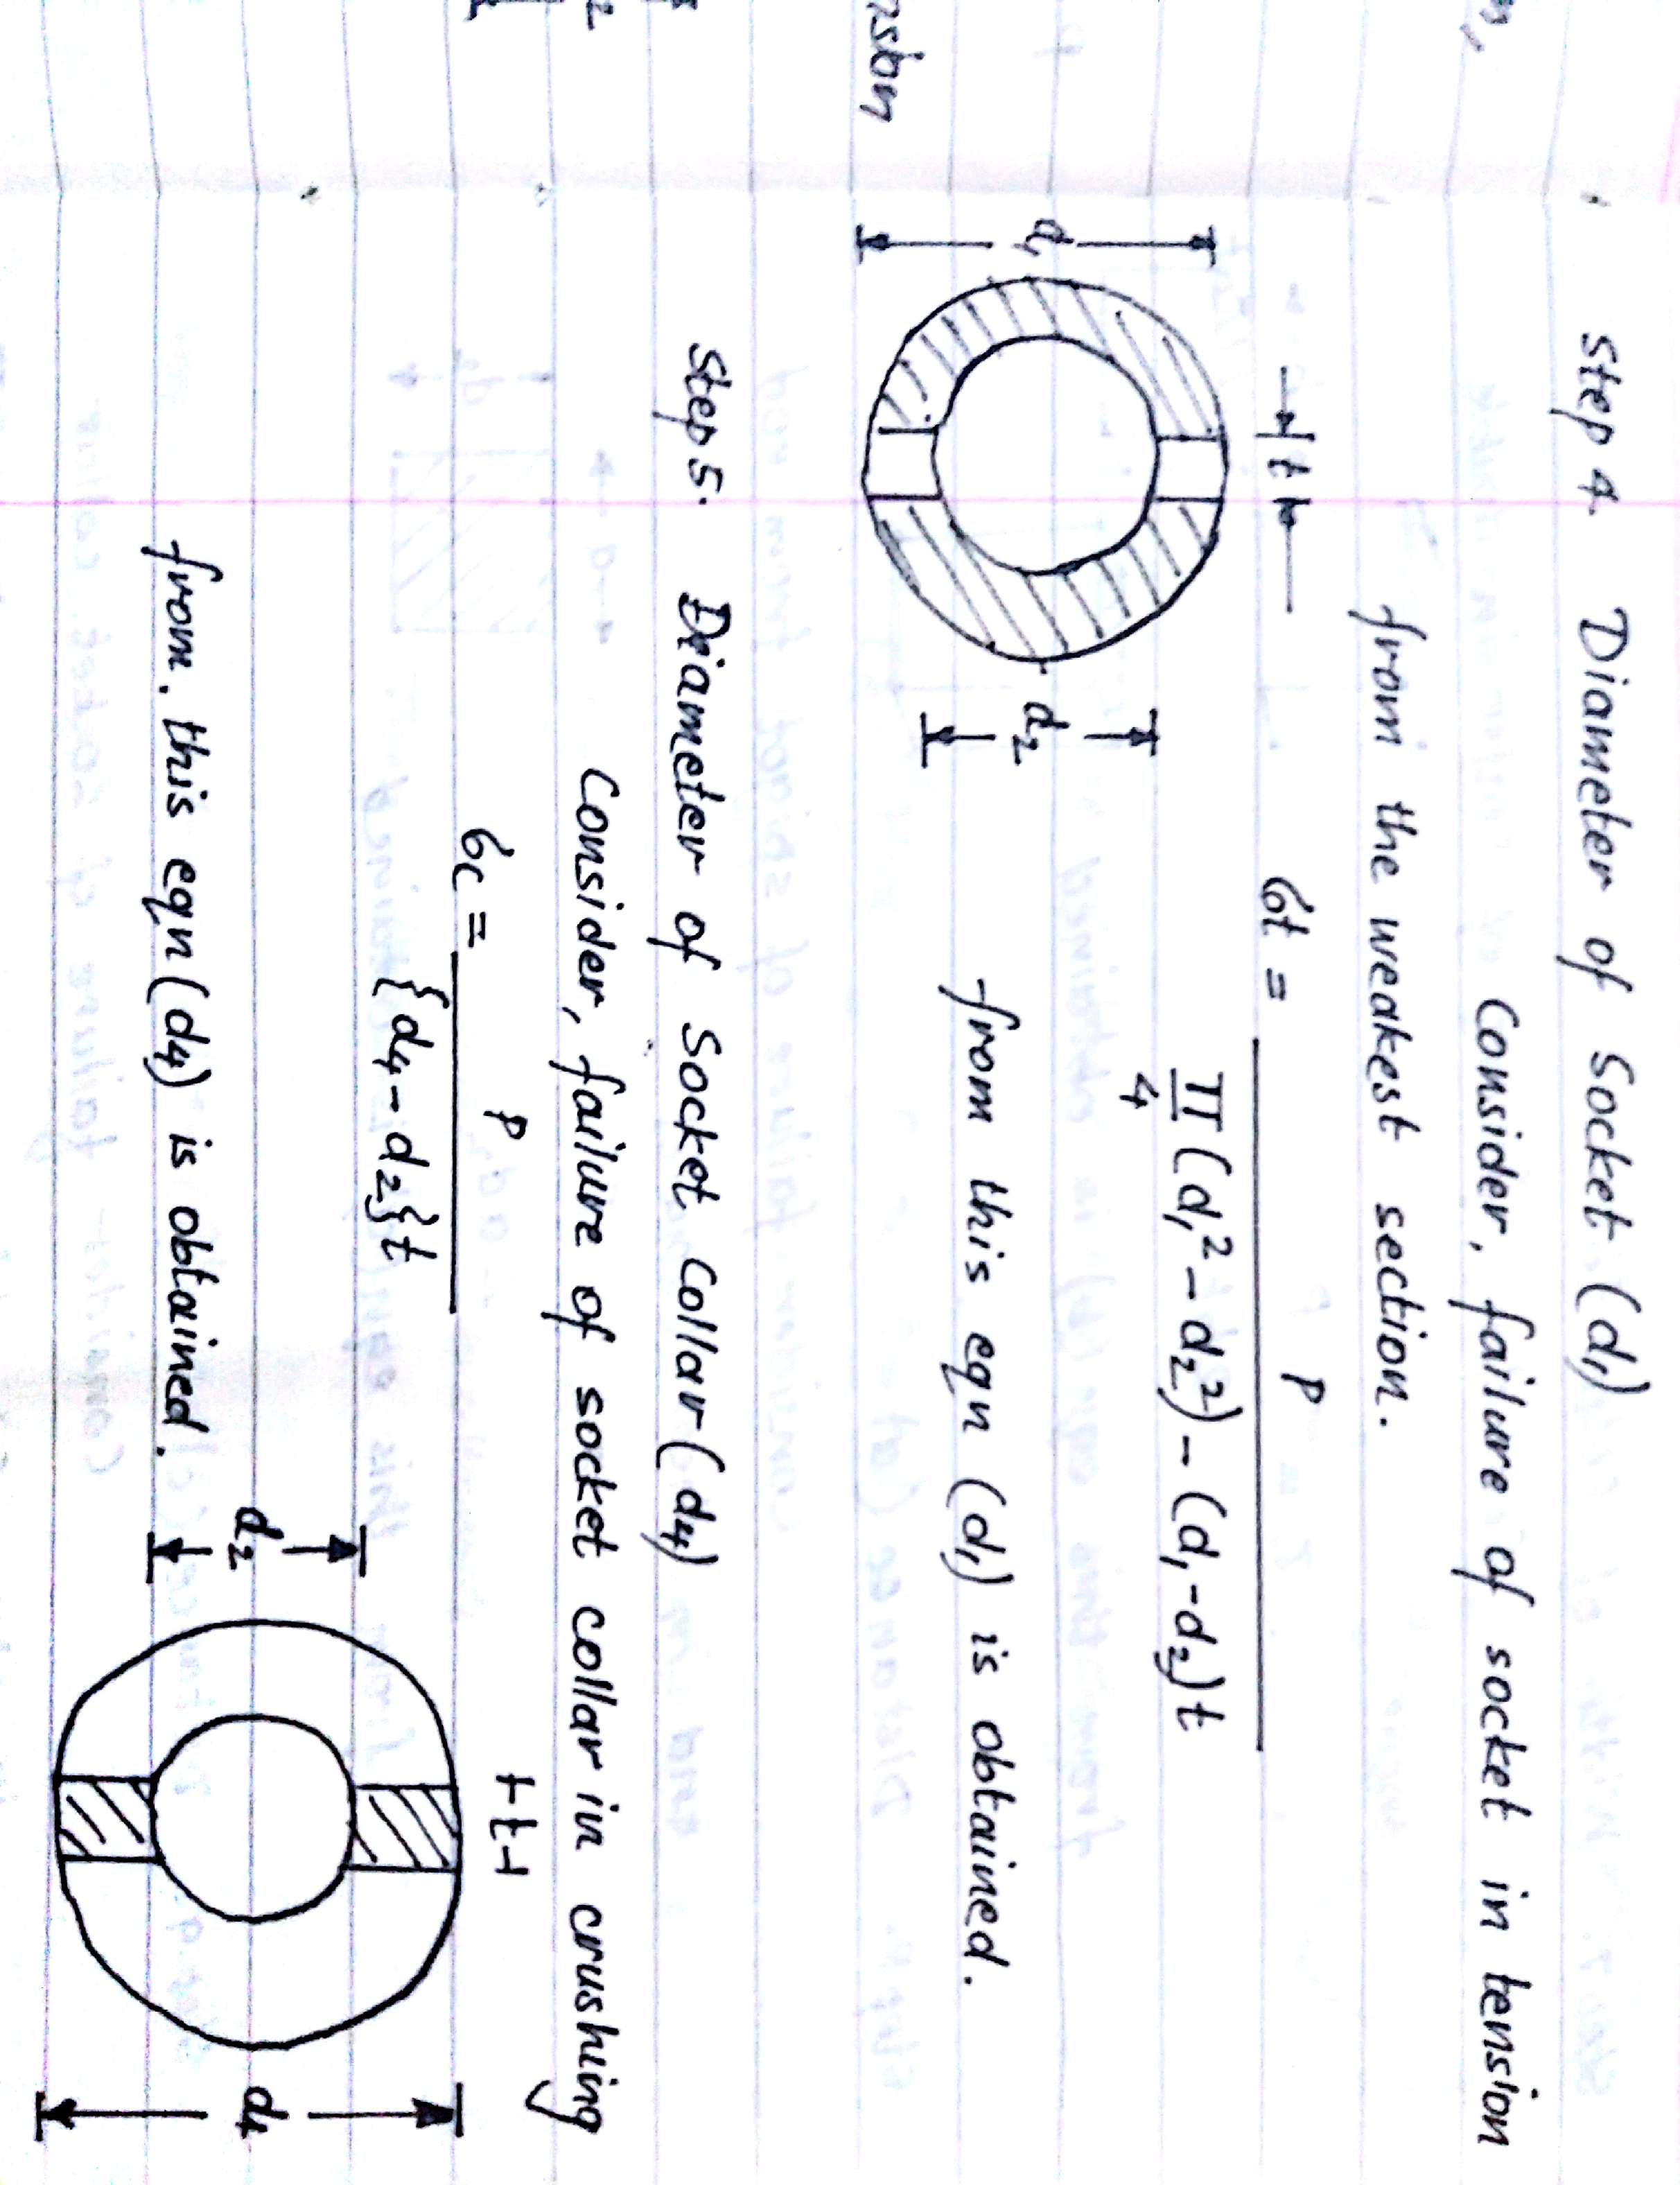 Step 4 Diameter of Socket (d₁)
Consider, failure of socket in tension
from the weakest section.
t
d₁
d₂
σt = P / π/4 (d₁² - d₂²) - (d₁ - d₂)t
from this eqn (d₁) is obtained.
Step 5. Diameter of Socket Collar (d₄)
Consider, failure of socket collar in crushing
σc = P / {d₄ - d₂}t
from. this eqn (d₄) is obtained.
t
d₂
d₄